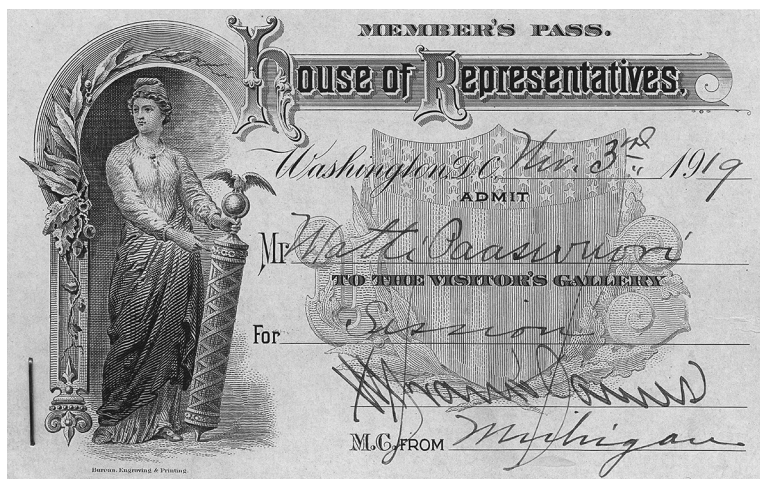 MEMBER'S PASS.
House of Representatives.
Washington, D.C. Nov. 3rd 1919
ADMIT
Mr Matti Paasivuori
TO THE VISITOR'S GALLERY
For Session
W Frank James
M.C. FROM Michigan
Bureau, Engraving & Printing.